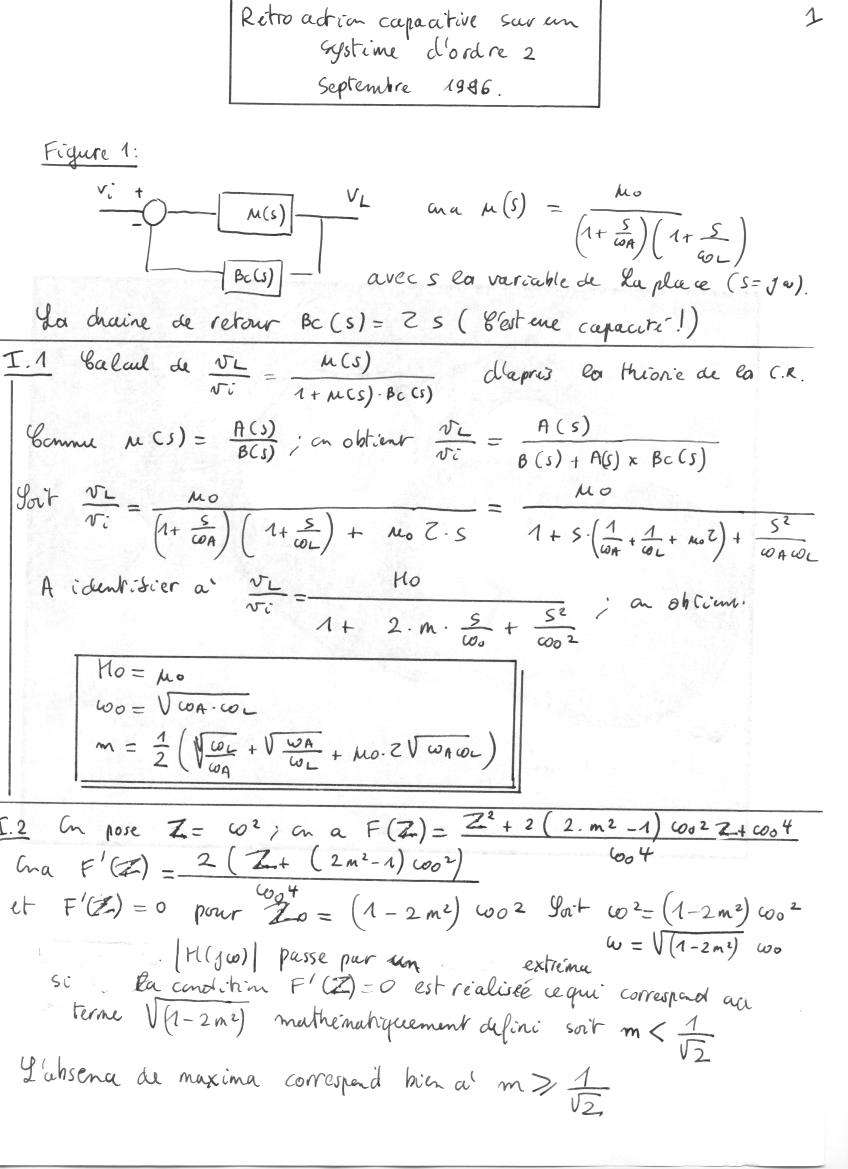 1
Rétroaction capacitive sur un
système d'ordre 2
Septembre 1996.
Figure 1:
Vi + - μ(s) VL
Bc(s)
on a μ(s) = μo / ((1 + s/ωA)(1 + s/ωL))
avec s la variable de Laplace (s = jω).
La chaine de retour Bc(s) = τ s (C'est une capacité !)
I.1 Calcul de vL/vi = μ(s) / (1 + μ(s)·Bc(s)) d'après la théorie de la C.R.
Comme μ(s) = A(s)/B(s) ; on obtient vL/vi = A(s) / (B(s) + A(s) x Bc(s))
Soit vL/vi = μo / ((1 + s/ωA)(1 + s/ωL) + μo τ·s) = μo / (1 + s·(1/ωA + 1/ωL + μo τ) + s²/(ωA ωL))
A identifier à vL/vi = Ho / (1 + 2·m·s/ωo + s²/ωo²) ; on obtient.
Ho = μo
ωo = √(ωA·ωL)
m = 1/2 (√(ωL/ωA) + √(ωA/ωL) + μo·τ √(ωA ωL))
I.2 On pose Z = ω² ; on a F(Z) = (Z² + 2(2·m² - 1) ωo² Z + ωo⁴) / ωo⁴
On a F'(Z) = 2(Z + (2m² - 1) ωo²) / ωo⁴
et F'(Z) = 0 pour Zo = (1 - 2m²) ωo² Soit ω² = (1 - 2m²) ωo²
ω = √(1 - 2m²) ωo
|H(jω)| passe par un extréma
si la condition F'(Z) = 0 est réalisée ce qui correspond au
terme √(1 - 2m²) mathématiquement défini soit m < 1/√2
L'absence de maxima correspond bien à m ⩾ 1/√2